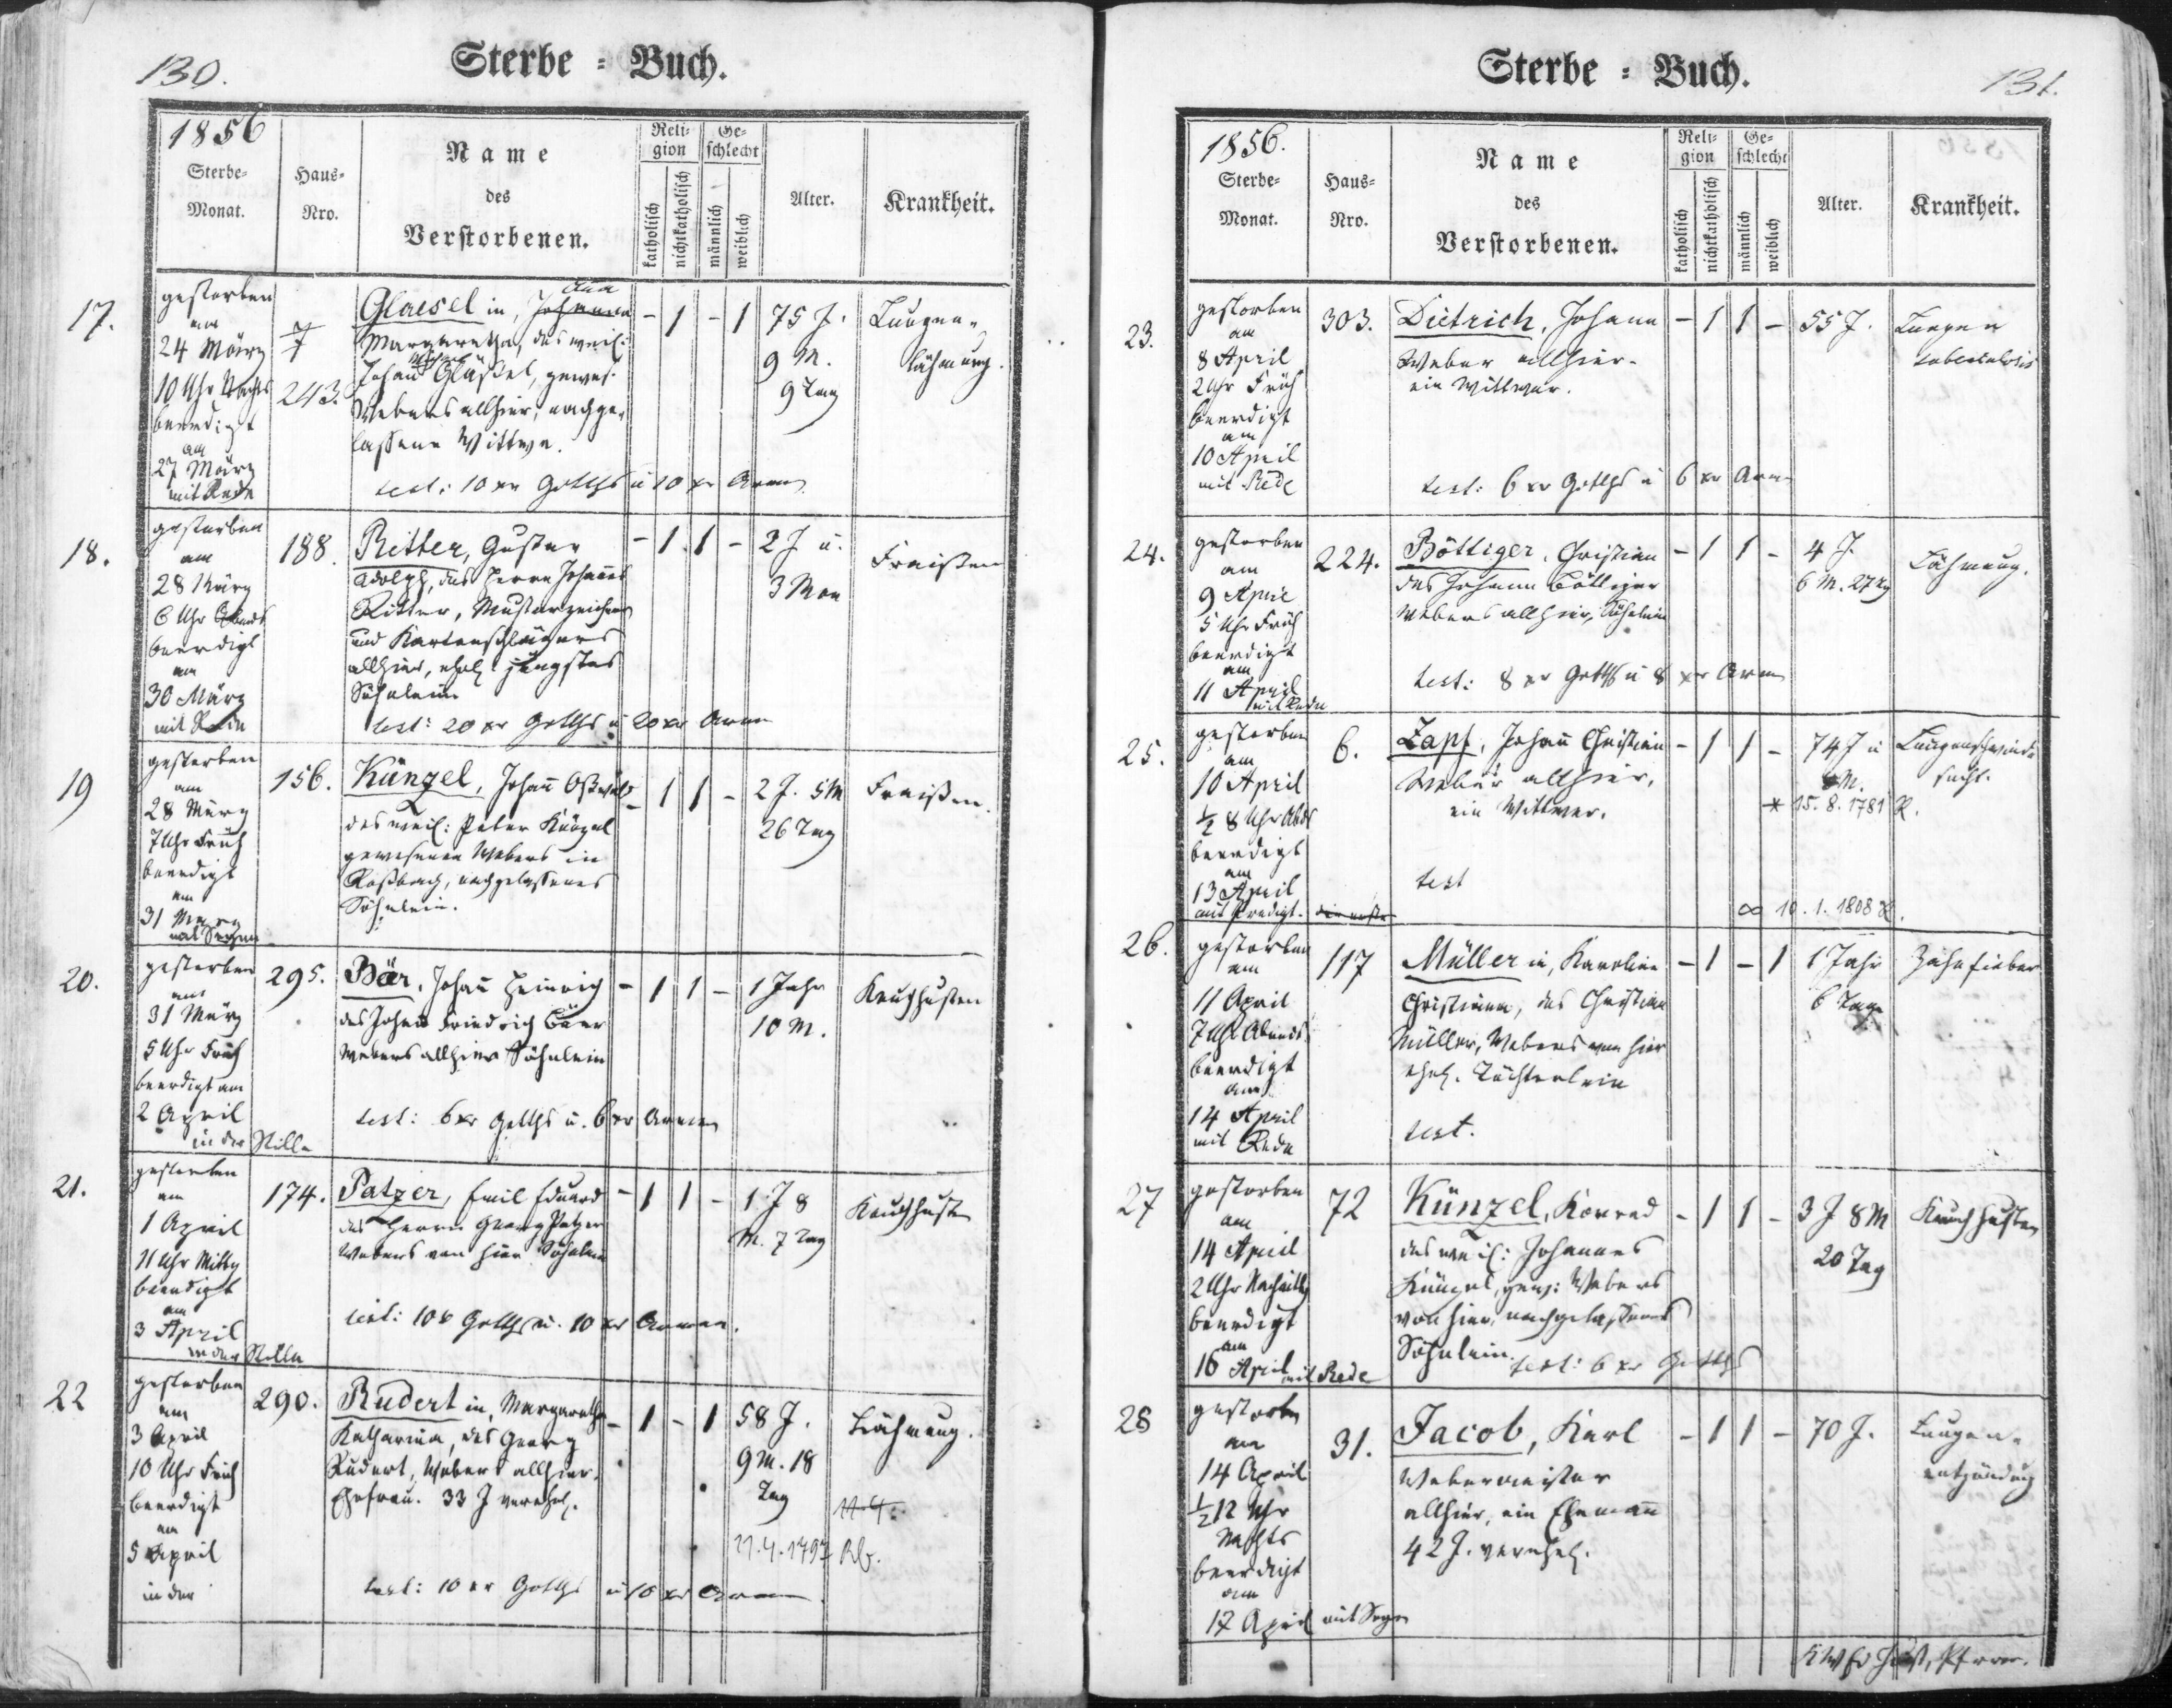 130.
Sterbe = Buch.
1856
Sterbe-
Monat.
Haus-
Nro.
Name
des
Verstorbenen.
Reli-
gion
katholisch
nichtkatholisch
Ge-
schlecht
männlich
weiblich
Alter.
Krankheit.
17.
gestorben
am
24 März
10 Uhr Nachts
beerdigt
am
27 März
mit Rede
243.
Glaesel in, Johanna
Margaretha, des weil:
Johann Gläßel, gewes.
Webers allhier, nachge-
lassene Wittwe.
test: 10 xr Gotths u 10 xr Armen
- 1 - 1
75 J.
9 M.
9 Tag
Lungen-
lähmung.
18.
gestorben
am
28 März
6 Uhr Abends
beerdigt
am
30 März
mit Rede
188.
Ritter, Gustav
Adolph, des Herrn Johannes
Ritter, Musterzeichners
und Kartenschlägers
allhier, ehel. jüngstes
Söhnlein
test: 20 xr Gotths u 20 xr Armen
- 1 1 -
2 J u.
3 Mon
Fraißen
19
gestorben
am
28 März
7 Uhr Früh
beerdigt
am
31 März
mit Segen
156.
Künzel, Johann Oßwald
des weil: Peter Künzel
gewesenen Webers in
Roßbach, nachgelassenes
Söhnlein.
- 1 1 -
2 J. 5 M
26 Tag
Fraißen.
20.
gestorben
am
31 März
5 Uhr Früh
beerdigt am
2 April
in der Stille
295.
Bär, Johann Heinrich
des Johann Friedrich Bäer
Webers allhier Söhnlein
test: 6 xr Gotths u. 6 xr Armen
- 1 1 -
1 Jahr
10 M.
Keuchhusten
21.
gestorben
am
1 April
11 Uhr Mittg
beerdigt
am
3 April
in der Stille
174.
Patzer, Emil Eduard
des Herrn Georg Patzer
Webers von hier Söhnlein
test: 10 xr Gotths u. 10 xr Armen.
- 1 1 -
1 J 8
M. 7 Tag
Keuchhusten
22
gestorben
am
3 April
10 Uhr Früh
beerdigt
am
5 April
in der
290.
Rudert in, Margaretha
Katharina, des Georg
Rudert, Webers allhier
Ehefrau. 33 J verehel.
test: 10 xr Gotths u 10 xr Armen
- 1 - 1
58 J.
9 M. 18
Tag
Lähmung.
131.
Sterbe = Buch.
1856.
Sterbe-
Monat.
Haus-
Nro.
Name
des
Verstorbenen.
Reli-
gion
katholisch
nichtkatholisch
Ge-
schlecht
männlich
weiblich
Alter.
Krankheit.
23.
gestorben
am
8 April
2 Uhr Früh
beerdigt
am
10 April
mit Rede
303.
Dietrich, Johann
Weber allhier.
ein Wittwer.
test: 6 xr Gotths u 6 xr Arm
- 1 1 -
55 J.
Lungen
24.
gestorben
am
9 April
5 Uhr Früh
beerdigt
am
11 April
mit Rede
224.
Böttiger, Christian
des Johann Böttiger
Webers allhier, Söhnlein
test: 8 xr Gotths u 8 xr Arm
- 1 1 -
4 J.
6 M. 27 Tg
Lähmung.
25.
gestorben
am
10 April
½ 8 Uhr Abds
beerdigt
am
13 April
mit Predigt.
6.
Zapf, Johann Christian
Weber allhier,
ein Wittwer.
test
- 1 1 -
74 J u
M.
* 15. 8. 1781 R.
∞ 10. 1. 1808 R.
Lungenschwind-
sucht.
26.
gestorben
am
11 April
7 Uhr Abends
beerdigt
am
14 April
mit Rede
117
Müller in, Karoline
Christiana, des Christian
Müller, Webers von hier
ehel. Töchterlein
test.
- 1 - 1
1 Jahr
6 Tage
Zahnfieber
27
gestorben
am
14 April
2 Uhr Nachmittg
beerdigt
am
16 April mit Rede
72
Künzel, Konrad
des weil: Johannes
Künzel, gew: Webers
von hier, nachgelassenes
Söhnlein.
test: 6 xr Gotths
- 1 1 -
3 J 8 M
20 Tag
Keuchhusten
28
gestorben
am
14 April
½ 12 Uhr
Nachts
beerdigt
am
17 April mit Segen
31.
Jacob, Karl
Webermeister
allhier, ein Ehemann
42 J. verehel.
- 1 1 -
70 J.
Lungen-
entzündung